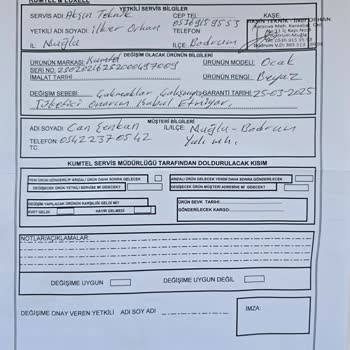 KUMTEL & LUXELL
YETKİLİ SERVİS BİLGİLERİ
SERVİS ADI Akşın Teknik
CEP TEL 0536 915 9553
KAŞE
YETKİLİ ADI SOYADI İlker Orhan
TELEFON
İL Muğla
İLÇE Bodrum
DEĞİŞİM OLACAK ÜRÜN BİLGİLERİ
ÜRÜNÜN MARKASI Kumtel
ÜRÜNÜN MODELİ Ocak
SERİ NO:
İMALAT TARİHİ
ÜRÜNÜN RENGİ: Beyaz
DEĞİŞİM SEBEBİ: Çakmaklar Çalışmıyor
GARANTİ TARİHİ 25-03-2025
Tüketici onarım kabul Etmiyor,
MÜŞTERİ BİLGİLERİ
ADI SOYADI: Can Şenkan
İL/İLÇE: Muğla - Bodrum
TELEFON: 05422370542
Yalı mh.
TC:
KUMTEL SERVİS MÜDÜRLÜĞÜ TARAFINDAN DOLDURULACAK KISIM
YENİ ÜRÜN GÖNDERİLİP ARIZALI ÜRÜN DAHA SONRA GELECEK
ARIZALI ÜRÜN GELECEK YENİSİ DAHA SONRA GÖNDERİLECEK
DEĞİŞECEK ÜRÜN YETKİLİ SERVİSE Mİ GİDECEK?
DEĞİŞECEK ÜRÜN MÜŞTERİ ADRESİNE Mİ GİDECEK?
DEĞİŞİM YAPILACAK ÜRÜNÜN KARŞILIĞI GELDİ Mİ?
EVET GELDİ
HAYIR GELMEDİ
ÜRÜN SEVK TARİHİ:
GÖNDERİLECEK KARGO:
NOTLAR/AÇIKLAMALAR
DEĞİŞİME UYGUN
DEĞİŞİME UYGUN DEĞİL
DEĞİŞİME ONAY VEREN YETKİLİ ADI SOY ADI
İMZA: